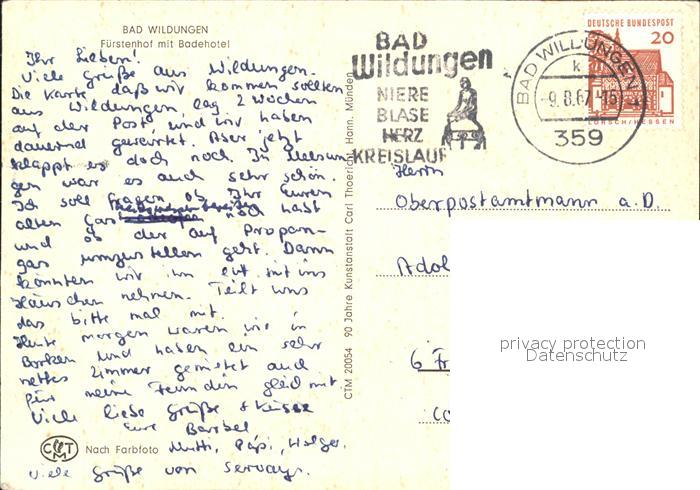 BAD WILDUNGEN
Fürstenhof mit Badehotel
Ihr Lieben!
Viele Grüße aus Wildungen.
Die Karte daß wir kommen sollten
aus Wildungen lag 2 Wochen
auf der Post, und wir haben
dauernd gewartet. Aber jetzt
klappt es doch noch. In Melsun
gen war es auch sehr schön.
Ich soll fragen ob Ihr Euren
alten Gas noch habt
und ob der auf Propan-
gas umzustellen geht. Dann
könnten wir ihn evt. mit ins
Häuschen nehmen. Teilt uns
das bitte mal mit.
Heute morgen waren wir in
Borken und haben ein sehr
nettes Zimmer gemietet auch
für meine Freundin gleich mit.
Viele liebe Grüße & Küsse
Eure Bärbel
Mutti, Papi, Holger.
Viele Grüße von Servays.
CTM
Nach Farbfoto
CTM 20054 90 Jahre Kunstanstalt Carl Thoericht, Hann. Münden
BAD
Wildungen
NIERE
BLASE
HERZ
KREISLAUF
BAD WILDUNGEN
k
-9.8.67-15
359
DEUTSCHE BUNDESPOST
20
LORSCH/HESSEN
Herrn
Oberpostamtmann a.D.
Adol
6 F
privacy protection
Datenschutz